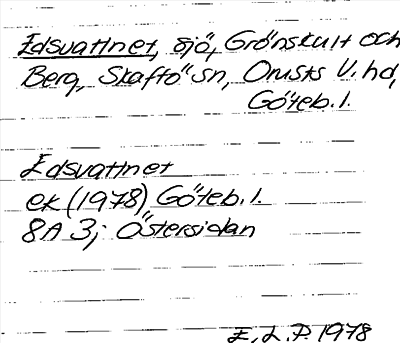 Edsvattnet, sjö, Grönskult och
Berg, Skaftö sn, Orusts V. hd,
Göteb. l.
Edsvattnet
ek (1978) Göteb. l.
8A 3j Östersidan
E. L. P. 1978